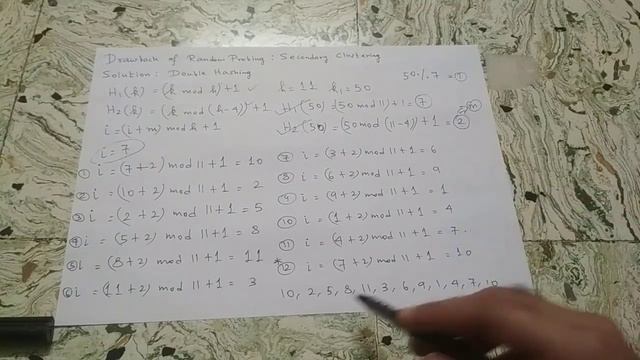 Drawback of Random Probing : Secondary Clustering
Solution : Double Hashing
H₁(k) = (k mod h) + 1 ✓ h = 11 k₁ = 50 50 % 7 = 1
H₂(k) = (k mod (h-4)) + 1 H₁(50) = (50 mod 11) + 1 = 7
i = (i + m) mod h + 1 H₂(50) = (50 mod (11-4)) + 1 = 2 = m
i = 7
① i = (7+2) mod 11 + 1 = 10
② i = (10+2) mod 11 + 1 = 2
③ i = (2+2) mod 11 + 1 = 5
④ i = (5+2) mod 11 + 1 = 8
⑤ i = (8+2) mod 11 + 1 = 11
⑥ i = (11+2) mod 11 + 1 = 3
⑦ i = (3+2) mod 11 + 1 = 6
⑧ i = (6+2) mod 11 + 1 = 9
⑨ i = (9+2) mod 11 + 1 = 1
⑩ i = (1+2) mod 11 + 1 = 4
⑪ i = (4+2) mod 11 + 1 = 7.
* ⑫ i = (7+2) mod 11 + 1 = 10
10, 2, 5, 8, 11, 3, 6, 9, 1, 4, 7, 10